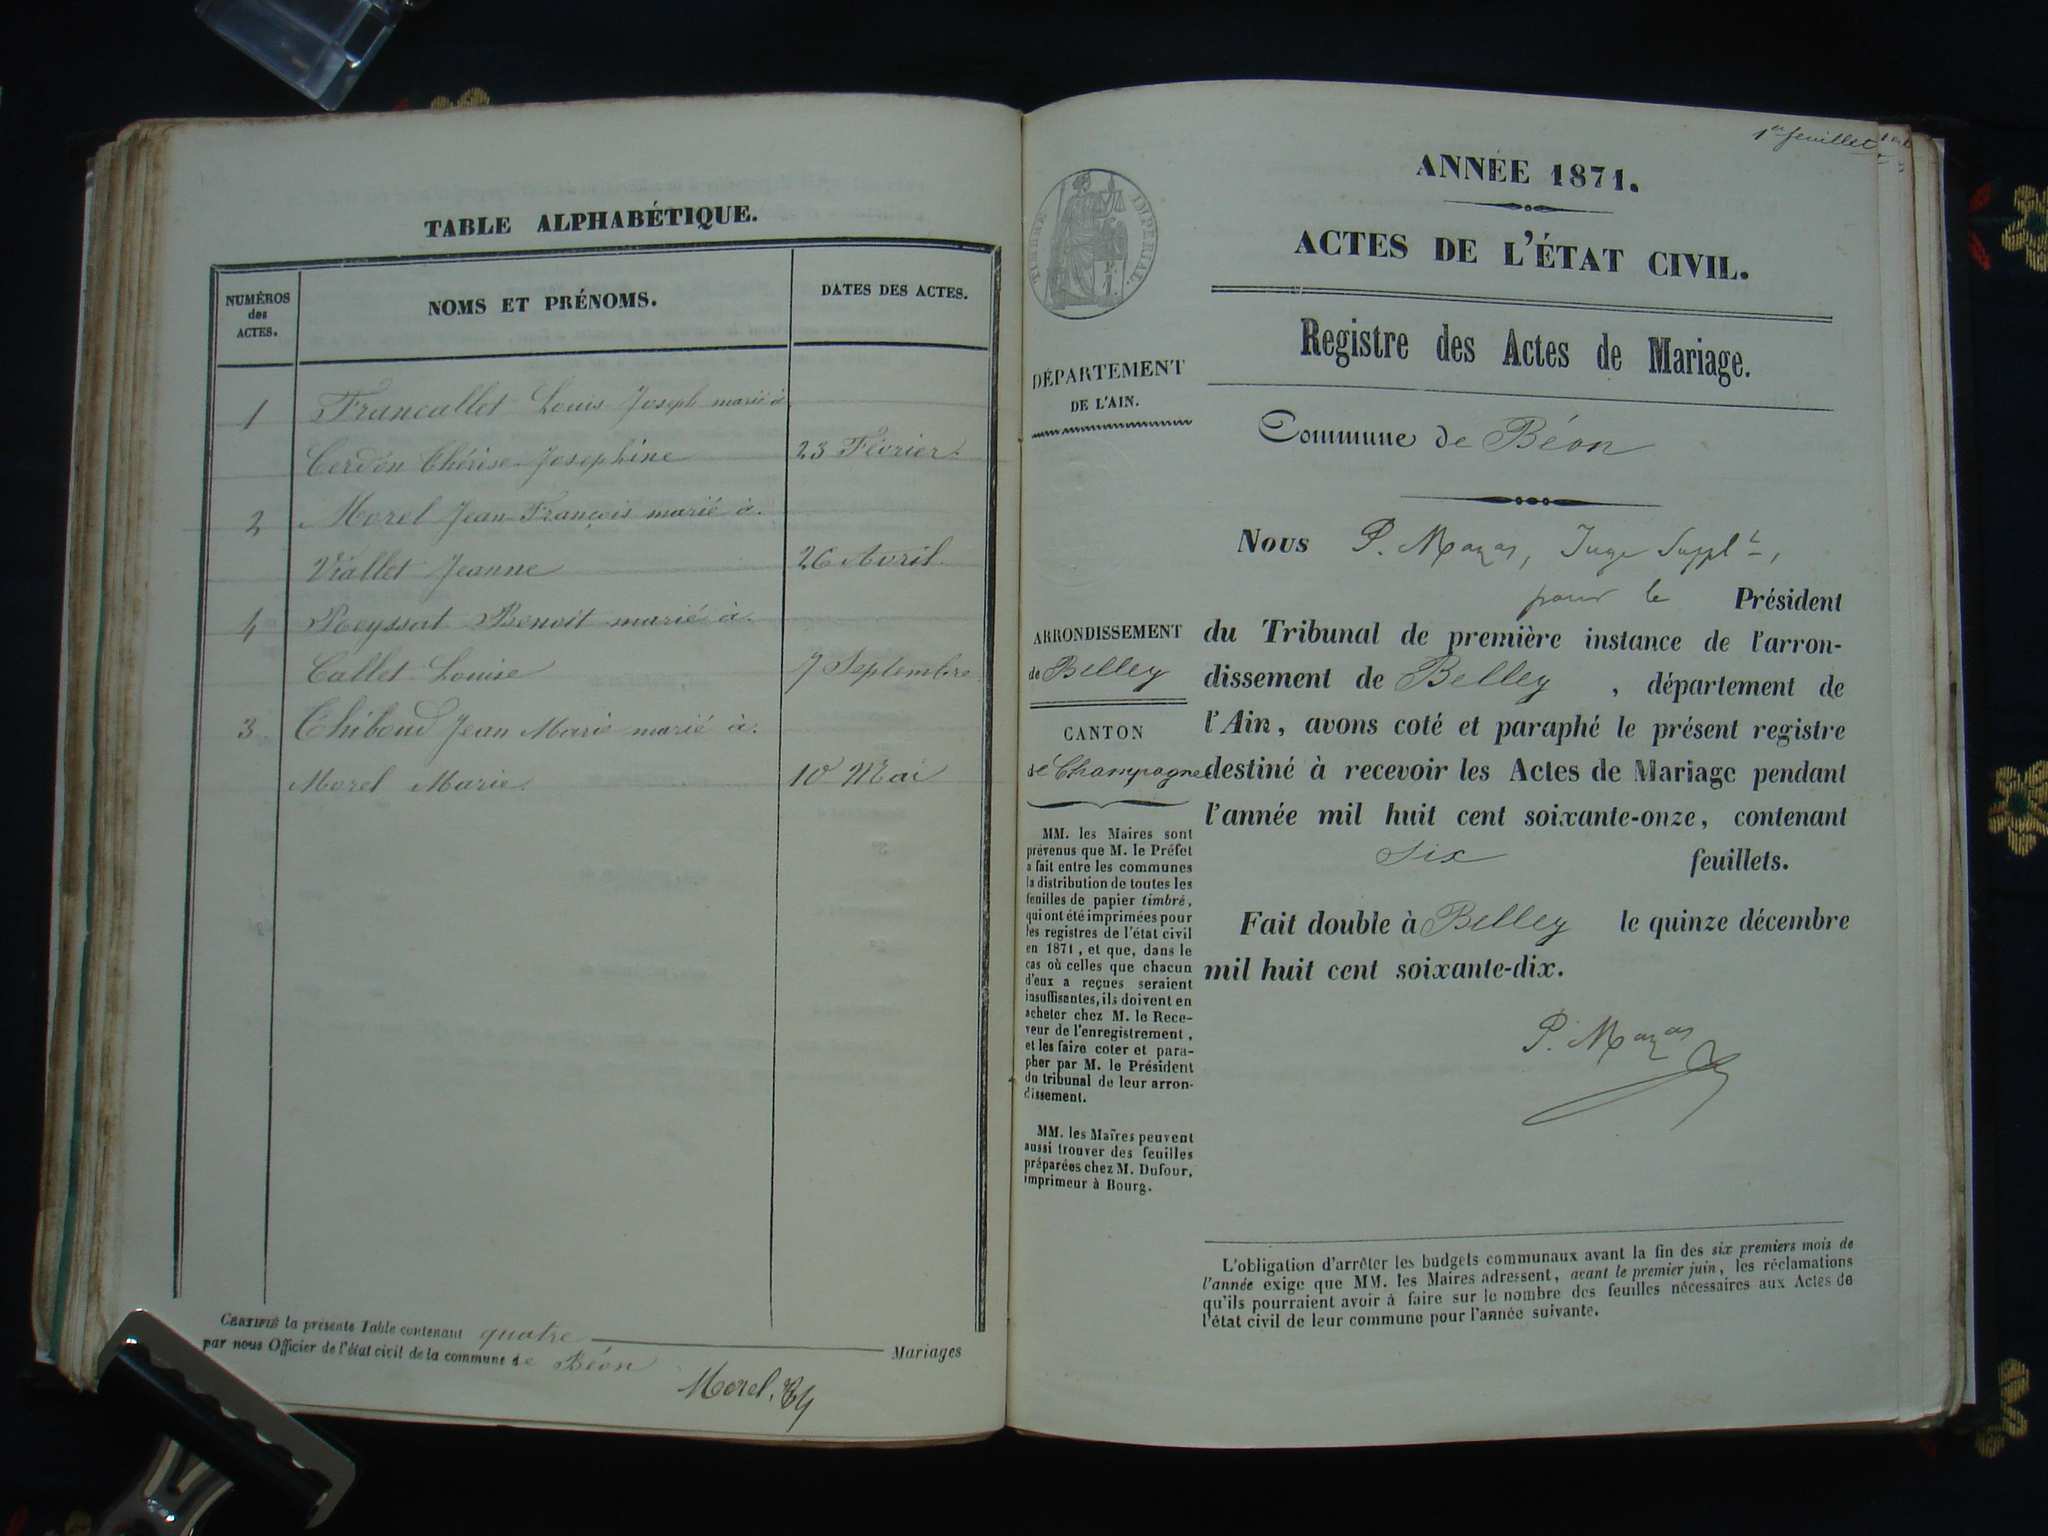 TABLE ALPHABÉTIQUE.
NUMÉROS
des
ACTES.
NOMS ET PRÉNOMS.
DATES DES ACTES.
1 Francallet Louis Joseph marié à
Cerdon Thérèse Josephine 23 Février.
2 Morel Jean François marié à.
Viallet Jeanne 26 Avril.
4 Reyssat Benoit marié à.
Callet Louise 7 Septembre
3 Thiboud Jean Marie marié à.
Morel Marie. 10 Mai
CERTIFIÉ la présente Table contenant quatre Mariages
par nous Officier de l'état civil de la commune de Béon
Morel.
1er feuillet
ANNÉE 1871.
ACTES DE L'ÉTAT CIVIL.
TIMBRE IMPÉRIAL.
Registre des Actes de Mariage.
DÉPARTEMENT
DE L'AIN.
Commune de Béon
Nous P. Mazas, Juge Supplt,
pour le Président
du Tribunal de première instance de l'arron-
dissement de Belley, département de
l'Ain, avons coté et paraphé le présent registre
destiné à recevoir les Actes de Mariage pendant
l'année mil huit cent soixante-onze, contenant
six feuillets.
Fait double à Belley le quinze décembre
mil huit cent soixante-dix.
P. Mazas
ARRONDISSEMENT
de Belley
CANTON
de Champagne
MM. les Maires sont
prévenus que M. le Préfet
a fait entre les communes
la distribution de toutes les
feuilles de papier timbré,
qui ont été imprimées pour
les registres de l'état civil
en 1871, et que, dans le
cas où celles que chacun
d'eux a reçues seraient
insuffisantes, ils doivent en
acheter chez M. le Rece-
veur de l'enregistrement,
et les faire coter et para-
pher par M. le Président
du tribunal de leur arron-
dissement.
MM. les Maires peuvent
aussi trouver des feuilles
préparées chez M. Dufour,
imprimeur à Bourg.
L'obligation d'arrêter les budgets communaux avant la fin des six premiers mois de
l'année exige que MM. les Maires adressent, avant le premier juin, les réclamations
qu'ils pourraient avoir à faire sur le nombre des feuilles nécessaires aux Actes de
l'état civil de leur commune pour l'année suivante.